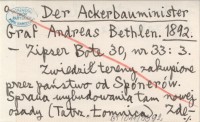 Der Ackerbauminister
Graf Andreas Bethlen. 1892.
— Zipser Bote 30, nr 33: 3.
Zwiedził tereny zakupione
przez państwo od Sponerów.
Sprawa wybudowania tam nowej
osady (Tatrz. Łomnica).